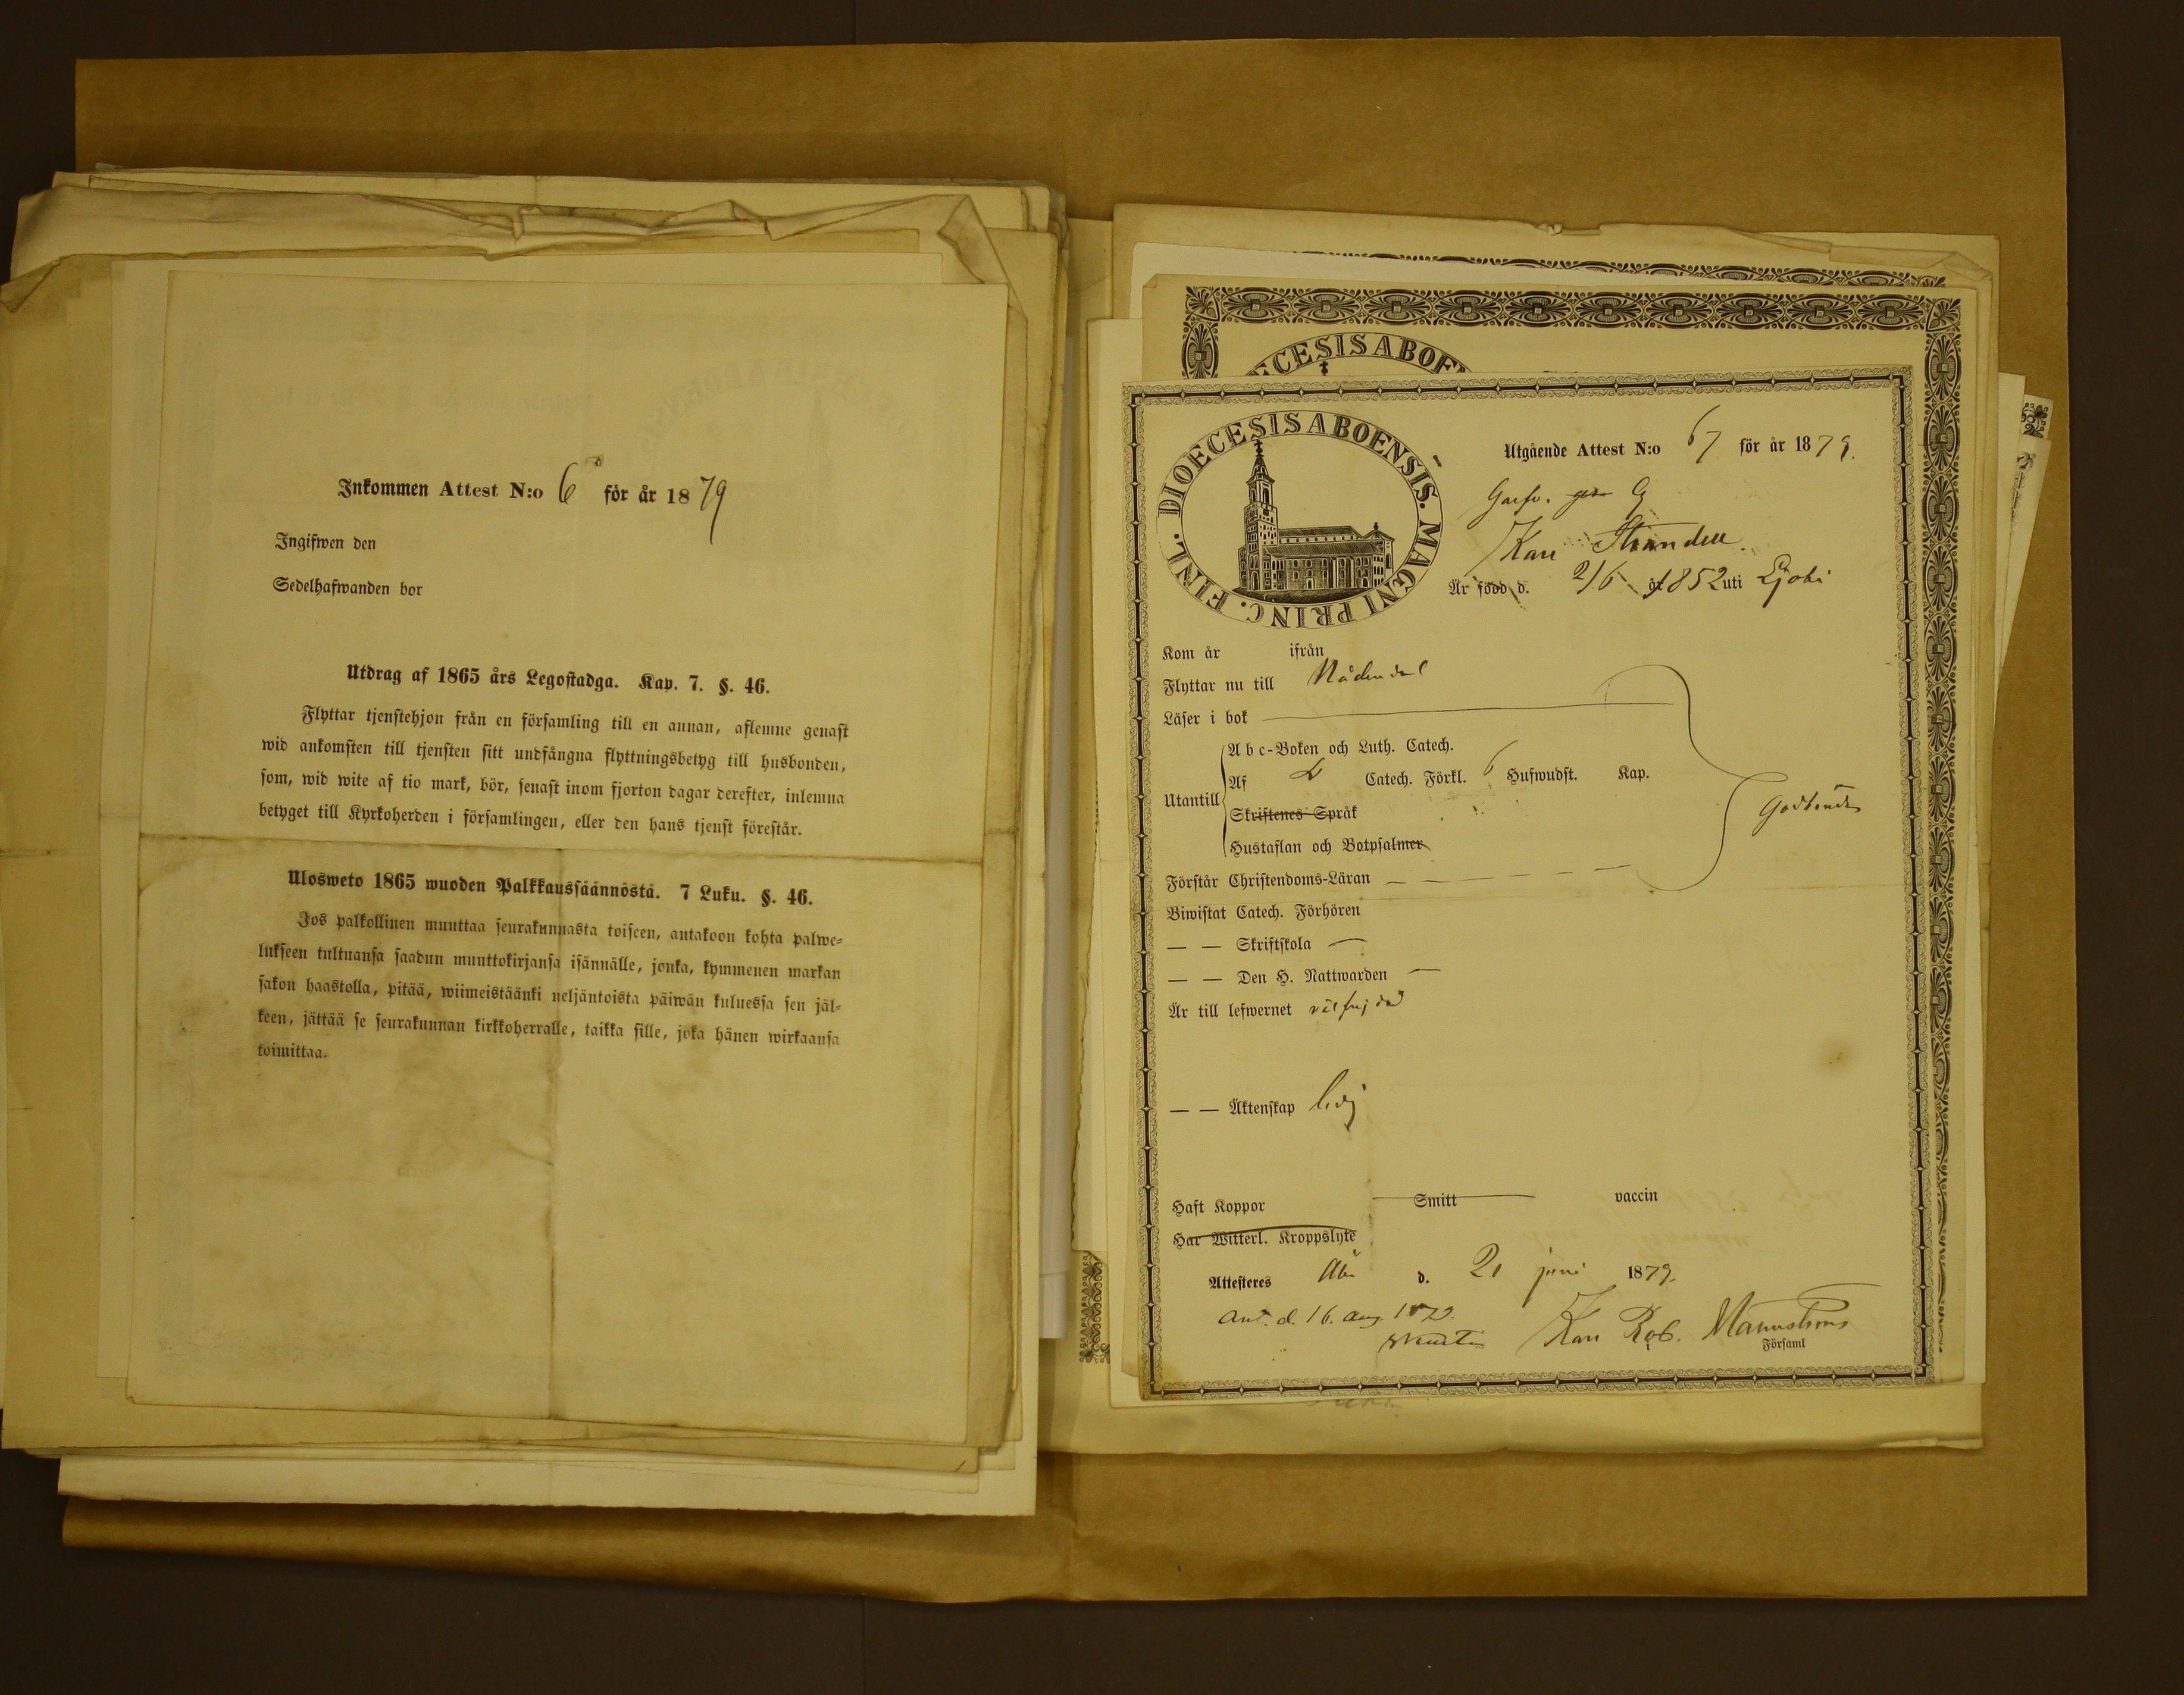 Inkommen Attest N:o 6 för år 1879
Ingifwen den
Sedelhafwanden bor
Utdrag af 1865 års Legostadga. Kap. 7. §. 46.
Flyttar tjenstehjon från en församling till en annan, aflemne genast
wid ankomsten till tjensten sitt undfångna flyttningsbetyg till husbonden,
som, wid wite af tio mark, bör, senast inom fjorton dagar derefter, inlemna
betyget till Kyrkoherden i församlingen, eller den hans tjenst förestår.
Ulosweto 1865 wuoden Palkkaussäännöstä. 7 Luku. §. 46.
Jos palkollinen muuttaa seurakunnasta toiseen, antakoon kohta palwe-
lukseen tultuansa saadun muuttokirjansa isännälle, jonka, kymmenen markan
sakon haastolla, pitää, wiimeistäänki neljäntoista päiwän kuluessa sen jäl-
keen, jättää se seurakunnan kirkkoherralle, taikka sille, joka hänen wirkaansa
toimittaa.
DIOECESIS ABOENSIS. MAGNI PRINC. FINL.
Utgående Attest N:o 67 för år 1879.
Garfv.
Karl Strandell
Är född d. 2/6 1852 uti
Kom år ifrån
Flyttar nu till Nådendal
Läser i bok
Abc-Boken och Luth. Catech.
Utantill Af Catech. Förkl. 6 Hufwudst. Kap.
Skriftenes Språk
Hustaflan och Botpsalmer
Godkända
Förstår Christendoms-Läran
Biwistat Catech. Förhören
— — Skriftskola —
— — Den H. Nattwarden —
Är till lefwernet välfrejdad
— — Äktenskap ledig
Haft Koppor Smitt vaccin
Har Witterl. Kroppslyte
Attesteres Åbo d. 21 juni 1879.
Ant. d. 16. Aug.
Karl Rob. Mannström
Församl